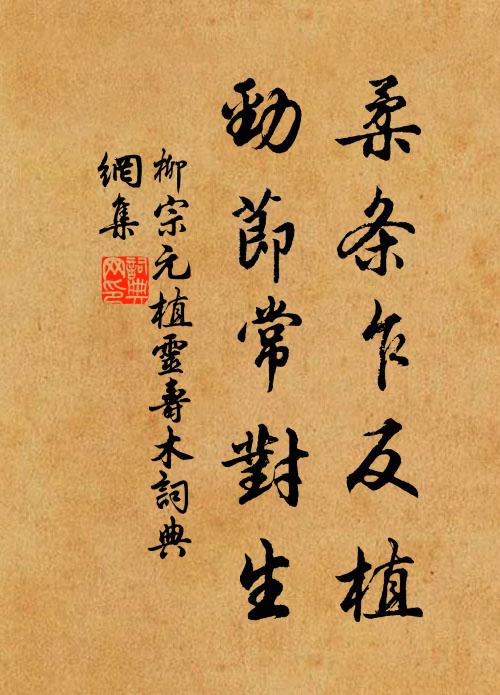 柔条乍反植
勁節常對生
柳宗元植靈壽木詞典
網集
詞典
网印